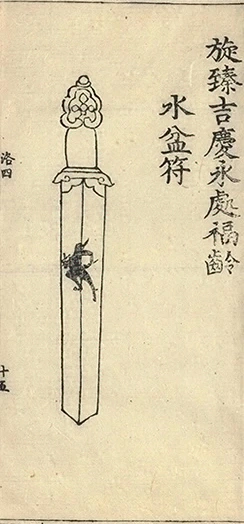 旋臻吉慶永處福齡
水盆符
洛四
十五